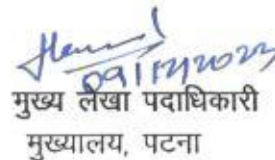 09/12/2023
मुख्य लेखा पदाधिकारी
मुख्यालय, पटना